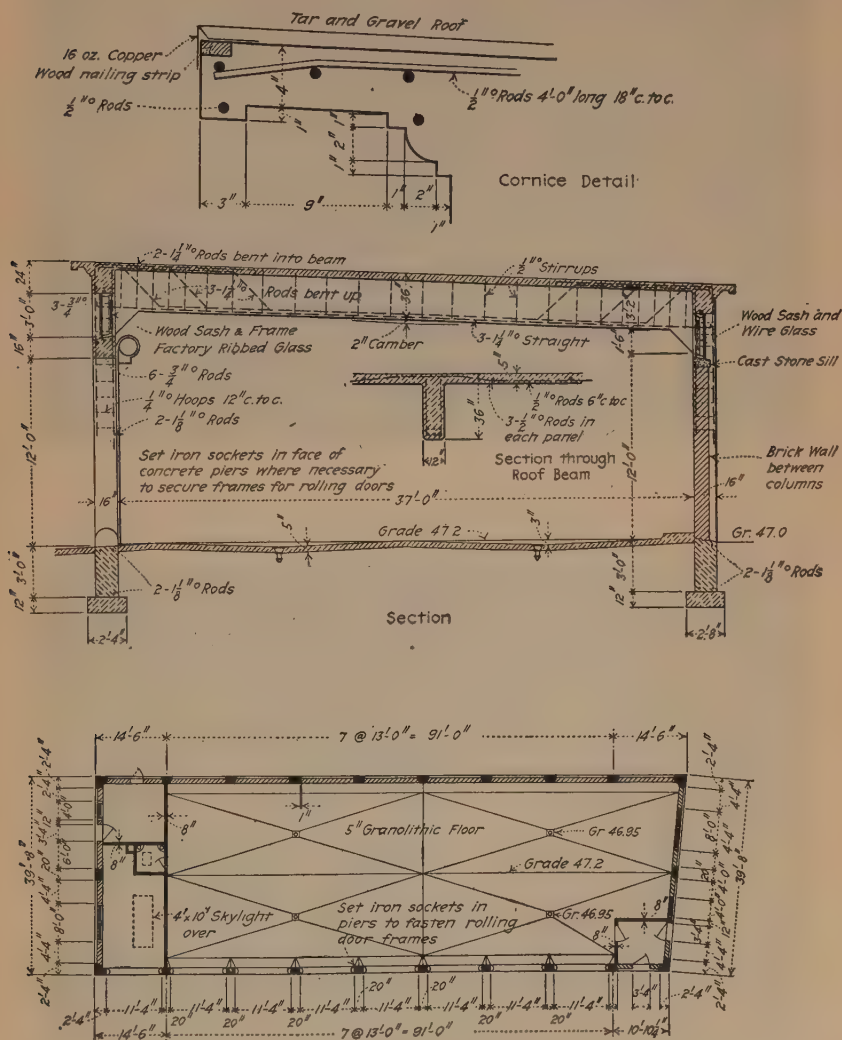 Tar and Gravel Roof
16 oz. Copper
Wood nailing strip
½"° Rods
4"
½"° Rods 4'-0" long 18" c. to c.
1"
1"
2"
1"
3"
9"
1"
2"
1"
Cornice Detail
24"
3'-0"
16"
12'-0"
3'-0"
12"
2-1¼"° Rods bent into beam
3-1¼"° Rods bent up
½"° Stirrups
36"
3-¾"°
Wood Sash & Frame
Factory Ribbed Glass
2" Camber
3-1¼"° Straight
3'-2"
1'-6"
Wood Sash and
Wire Glass
Cast Stone Sill
6-¾"° Rods
¼"° Hoops 12" c. to c.
2-1⅛"° Rods
5"
½"° Rods 6" c to c
3-½"° Rods in
each panel
36"
12"
Section through
Roof Beam
Set iron sockets in face of
concrete piers where necessary
to secure frames for rolling doors
12'-0"
Brick Wall
between
columns
16"
37'-0"
16"
Grade 47.2
5"
3"
Gr. 47.0
2-1⅛"° Rods
2-1⅛"° Rods
3'-0"
12"
2'-4"
Section
2'-8"
14'-6"
7 @ 13'-0" = 91'-0"
14'-6"
2'-4"
2'-4"
4'-0"
12"
3'-4"
6'-0"
20"
4'-4"
8'-0"
4'-4"
2'-4"
39'-8"
8"
1"
5" Granolithic Floor
Gr 46.95
8"
Grade 47.2
4' x 10' Skylight
over
Set iron sockets in
piers to fasten rolling
door frames
Gr. 46.95
8"
8"
2'-4"
4'-4"
8'-0"
4'-4"
20"
4'-0"
4'-0"
12"
3'-4"
4'-4"
2'-4"
39'-8"
2'-4"
11'-4"
11'-4"
11'-4"
11'-4"
11'-4"
11'-4"
11'-4"
3'-4"
2'-4"
20"
20"
20"
20"
20"
20"
20"
20"
14'-6"
7 @ 13'-0" = 91'-0"
10'-10¼"